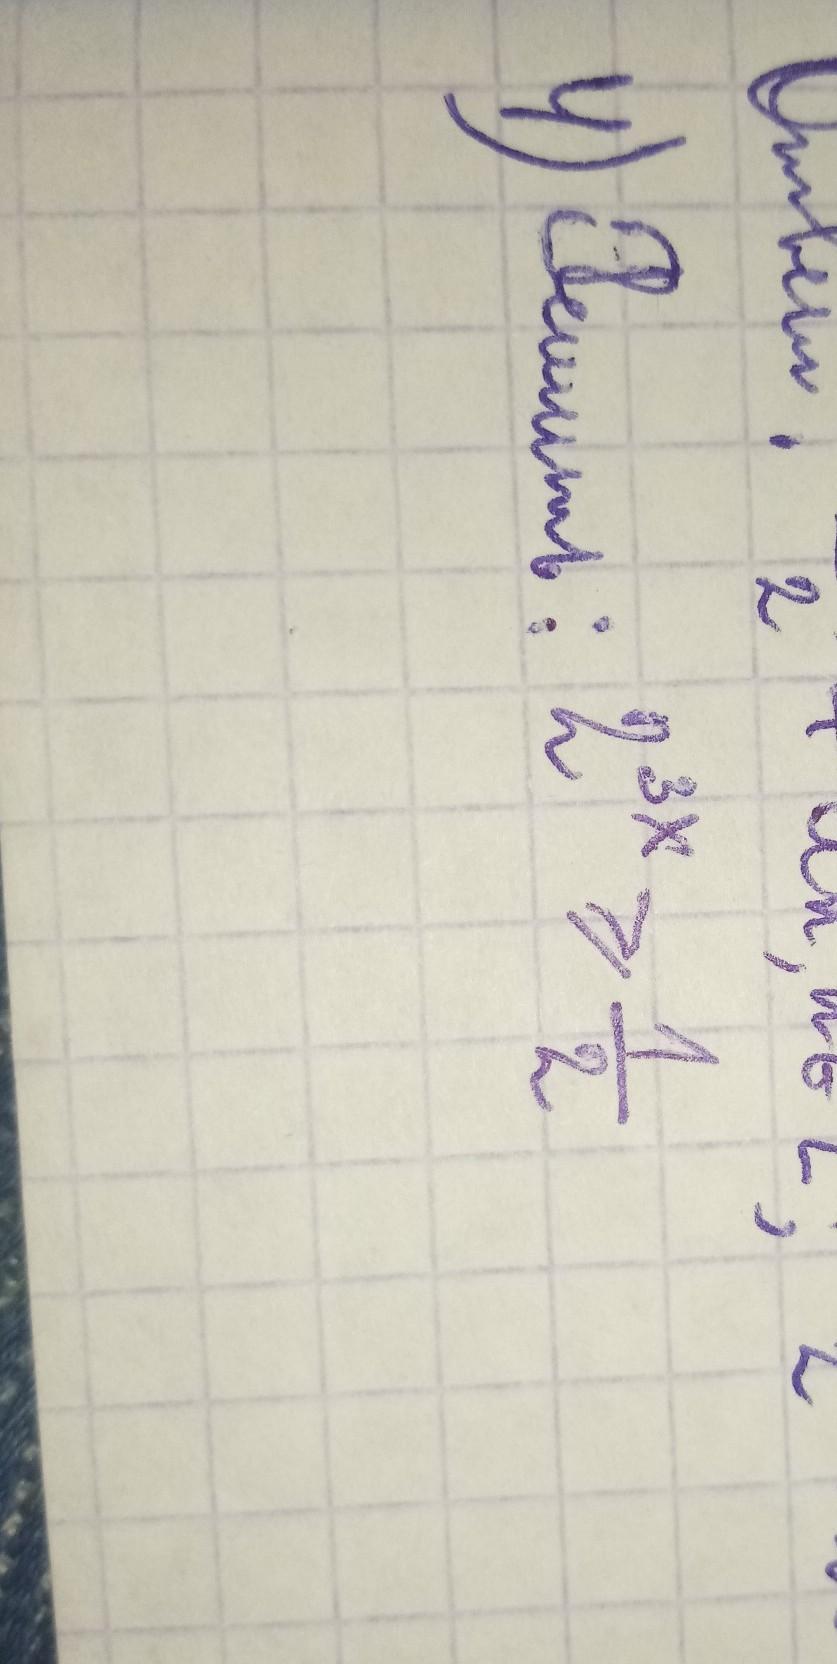 Ответ: 2 + πn, n∈Z;
4) Решить: 2^{3x} ⩾ 1/2